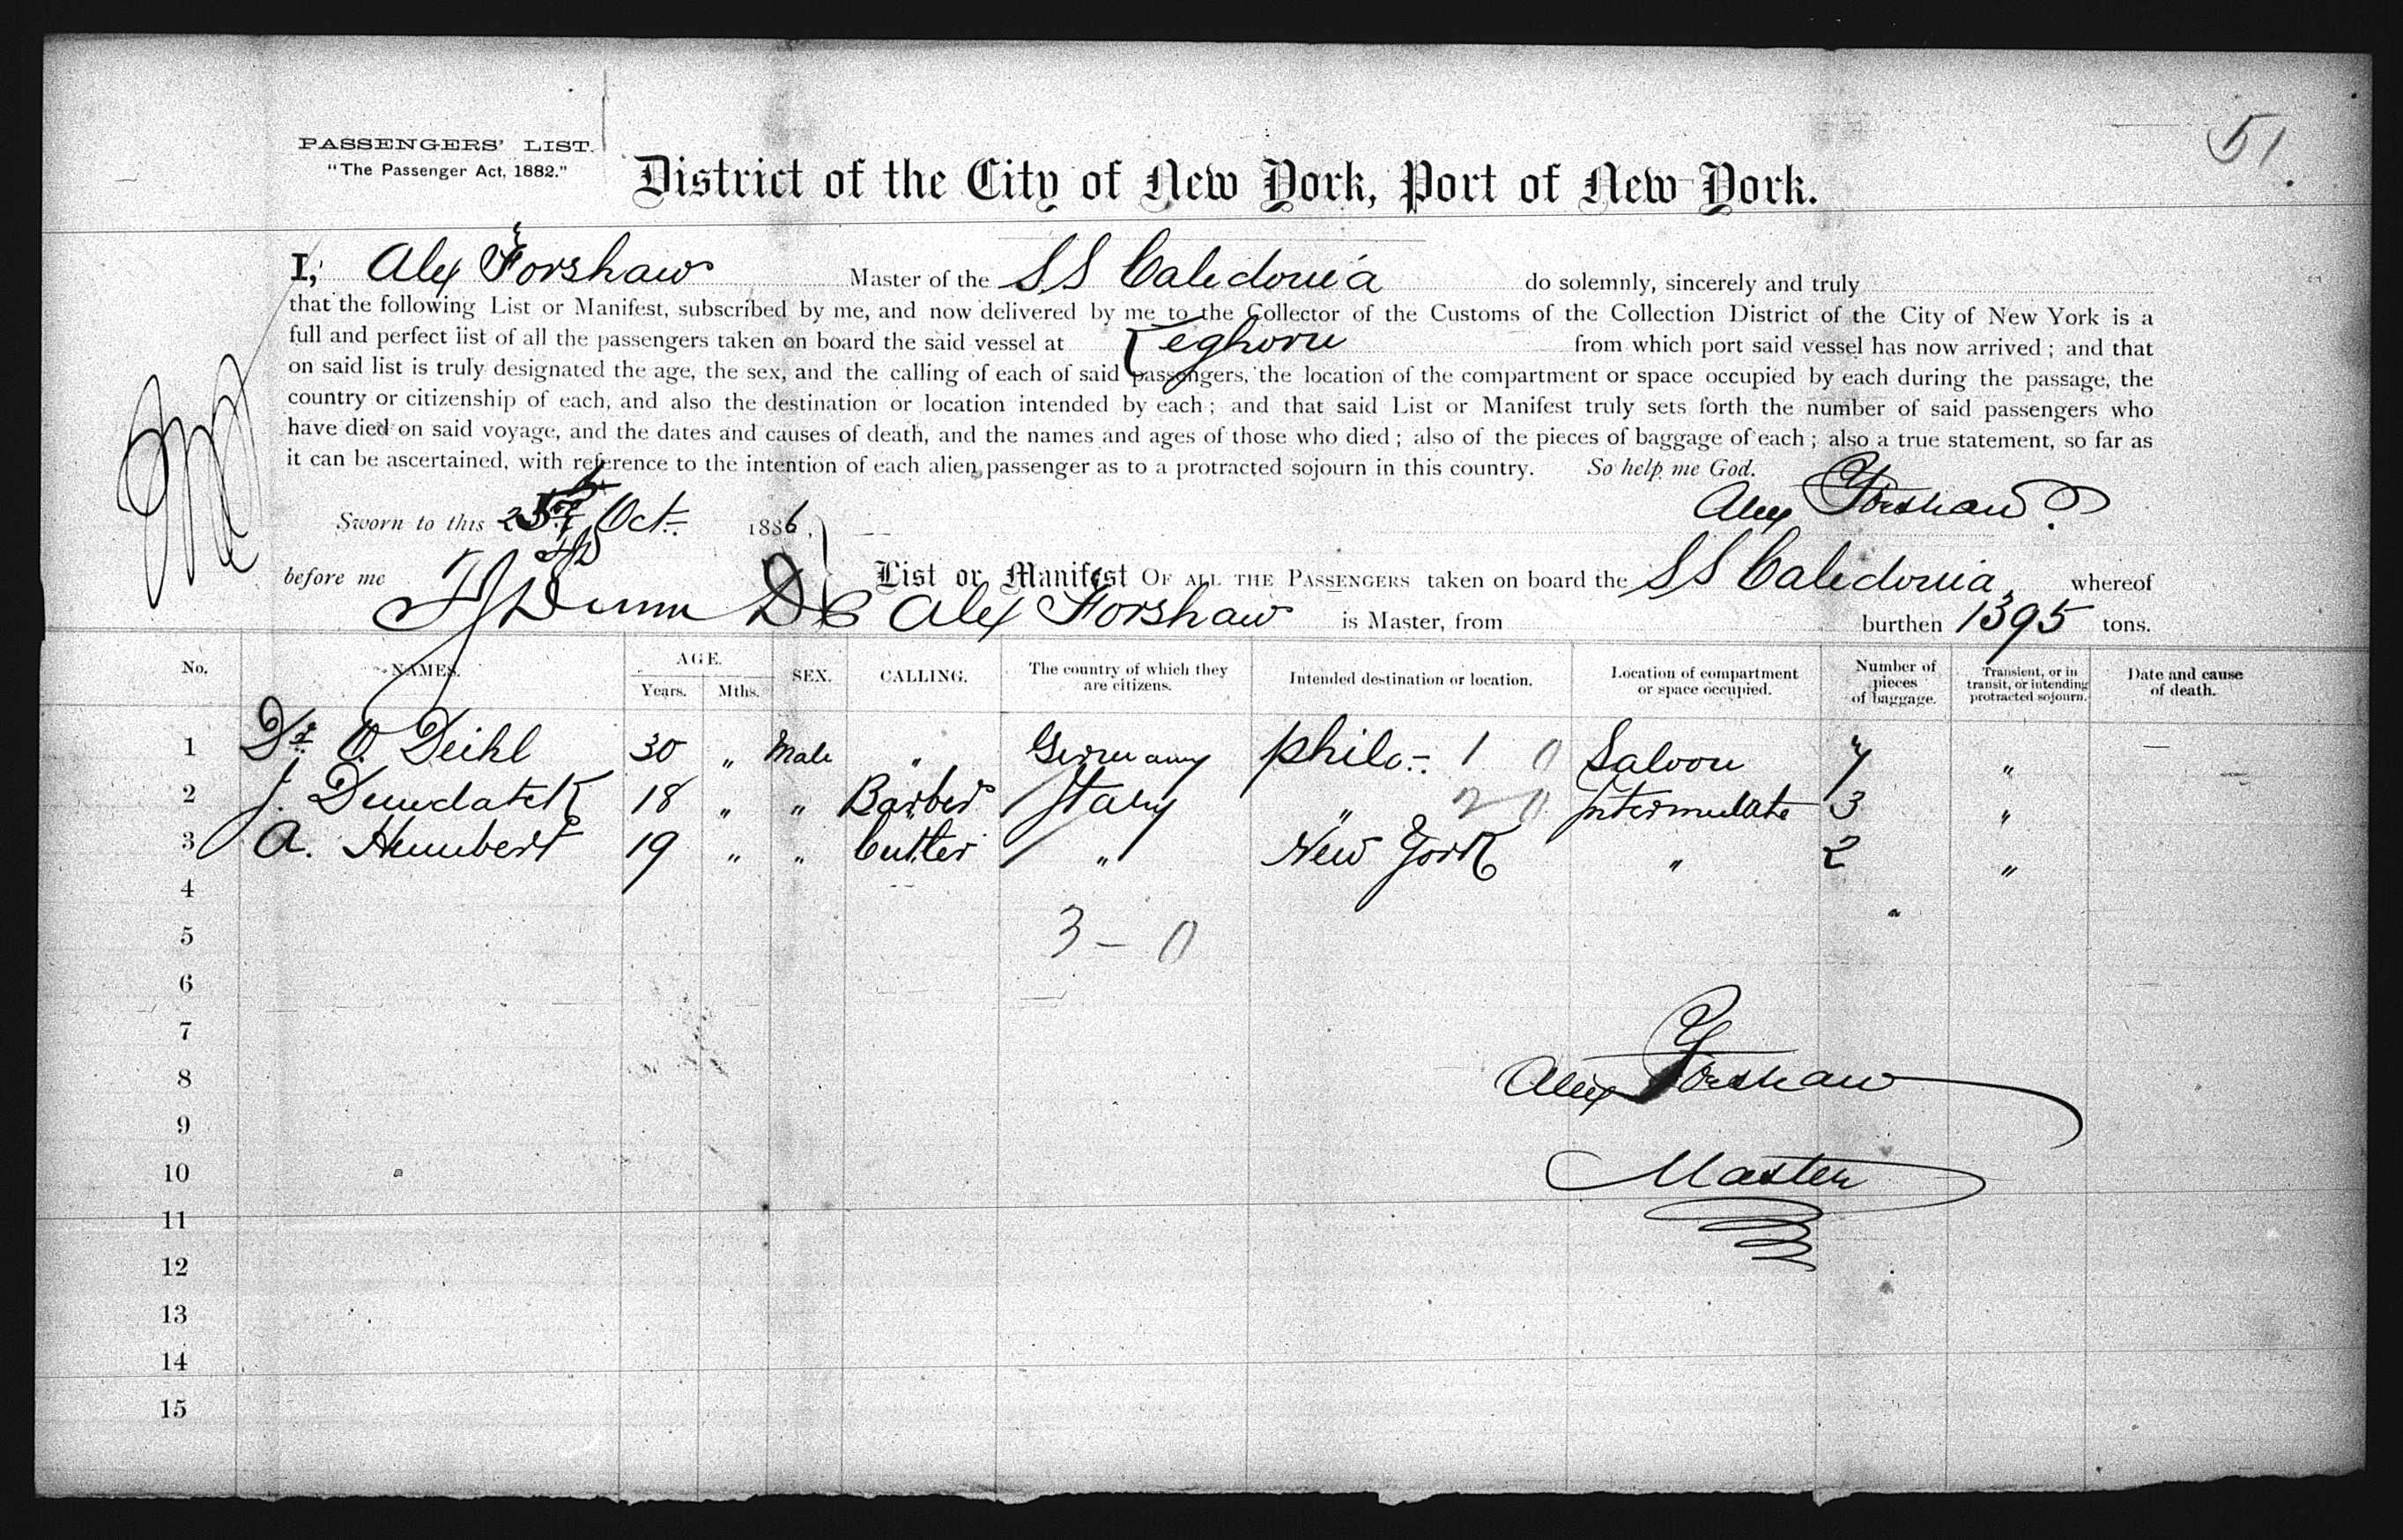 51
PASSENGERS' LIST.
"The Passenger Act, 1882."
District of the City of New York, Port of New York.
I, Alex Forshaw Master of the SS Caledonia do solemnly, sincerely and truly
that the following List or Manifest, subscribed by me, and now delivered by me to the Collector of the Customs of the Collection District of the City of New York is a
full and perfect list of all the passengers taken on board the said vessel at Leghorn from which port said vessel has now arrived; and that
on said list is truly designated the age, the sex, and the calling of each of said passengers, the location of the compartment or space occupied by each during the passage, the
country or citizenship of each, and also the destination or location intended by each; and that said List or Manifest truly sets forth the number of said passengers who
have died on said voyage, and the dates and causes of death, and the names and ages of those who died; also of the pieces of baggage of each; also a true statement, so far as
it can be ascertained, with reference to the intention of each alien passenger as to a protracted sojourn in this country. So help me God.
Alex Forshaw
Sworn to this Oct. 1886,
before me Dunn D C List or Manifest OF ALL THE PASSENGERS taken on board the SS Caledonia whereof
Alex Forshaw is Master, from burthen 1395 tons.
No. NAMES. AGE. Years. Mths. SEX. CALLING. The country of which they are citizens. Intended destination or location. Location of compartment or space occupied. Number of pieces of baggage. Transient, or in transit, or intending protracted sojourn. Date and cause of death.
1 Dr O Deihl 30 " Male " Germany Phila. 1 0 Saloon 7 "
2 J. 18 " " Barber Italy " 2 0 Intermediate 3 "
3 A. Humbert 19 " " Cutler " New York " 2 "
4
5 3 - 0
6
7
8 Alex Forshaw
9
10 Master
11
12
13
14
15